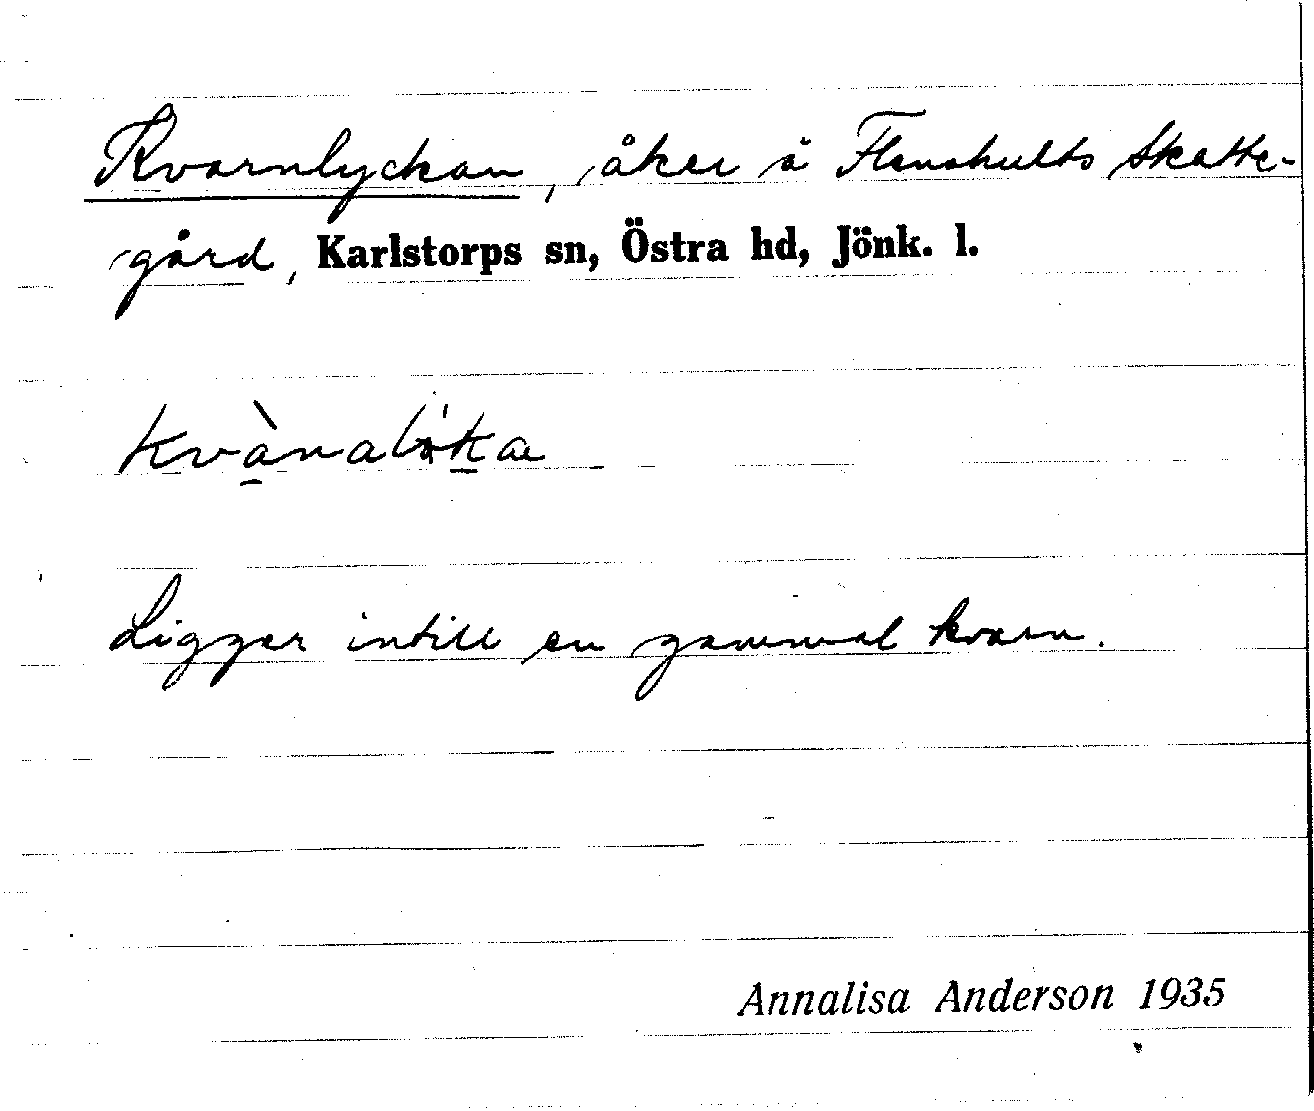 Kvarnlyckan, åker å Flenshults Skatte-
gård, Karlstorps sn, Östra hd, Jönk. l.
kvànalöka
Ligger intill en gammal kvarn.
Annalisa Anderson 1935